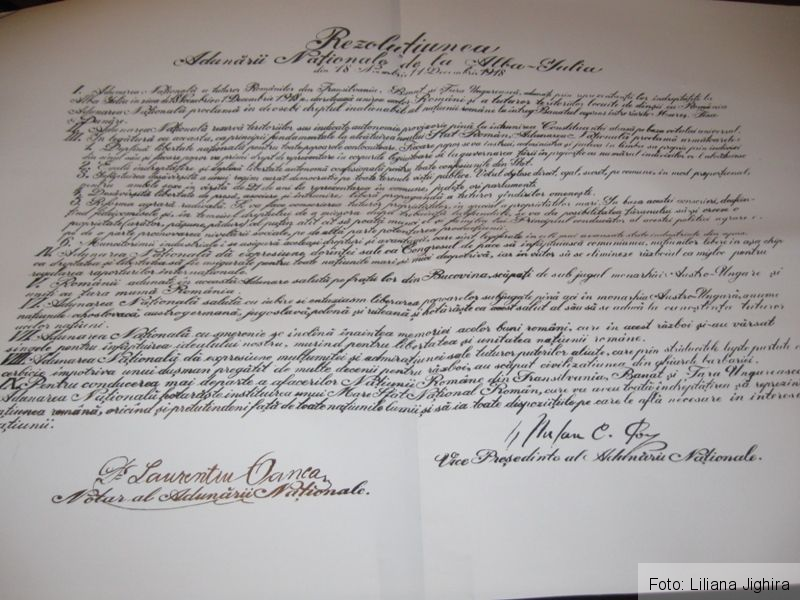 Rezoluțiunea
Adunării Naționale de la Alba-Iulia
din 18 Noembrie / 1 Decembrie 1918
I. Adunarea Națională a tuturor Românilor din Transilvania, Banat și Țara Ungurească, adunați prin reprezentanții lor îndreptățiți la
Alba Iulia în ziua de 18 Noembrie / 1 Decembrie 1918, decretează unirea acelor Români și a tuturor teritoriilor locuite de dînșii cu România
Adunarea Națională proclamă îndeosebi dreptul inalienabil al națiunii române la întreg Banatul cuprins între rîurile Mureș, Tisa
și Dunăre.
II. Adunarea Națională rezervă teritoriilor sus indicate autonomie provizorie pînă la întrunirea Constituantei aleasă pe baza votului universal.
III. În legătură cu aceasta, ca principii fundamentale la alcătuirea noului Stat Român, Adunarea Națională proclamă următoarele:
1. Deplină libertate națională pentru toate popoarele conlocuitoare. Fiecare popor se va instrui, administra și judeca în limba sa proprie prin indivizi
din sînul său și fiecare popor va primi drept de reprezentare în corpurile legiuitoare și la guvernarea țării în proporție cu numărul indivizilor ce-l alcătuesc
2. Egală îndreptățire și deplină libertate autonomă confesională pentru toate confesiunile din Stat.
3. Înfăptuirea desăvîrșită a unui regim curat democratic pe toate terenele vieții publice. Votul obștesc, direct, egal, secret, pe comune, în mod proporțional,
pentru ambele sexe în vîrstă de 21 de ani la reprezentarea în comune, județe ori parlament.
4. Desăvîrșită libertate de presă, asociere și întrunire, liberă propagandă a tuturor gîndurilor omenești.
5. Reforma agrară radicală. Se va face conscrierea tuturor proprietăților, în special a proprietăților mari. În baza acestei conscrieri, desfiin-
țînd fideicomisele și, în temeiul dreptului de a micșora după trebuință latifundiile, i se va da posibilitatea țăranului să-și creeze o
proprietate (arător, pășune, pădure) cel puțin atît cît să poată munci el și familia lui. Principiul conducător al acestei politici agrare e
pe de o parte promovarea nivelării sociale, pe de altă parte potențarea producțiunii.
6. Muncitorimii industriale i se asigură aceleași drepturi și avantagii, care sînt legiferate în cele mai avansate state industriale din apus.
IV. Adunarea Națională dă expresiune dorinței sale ca Congresul de pace să înfăptuiască comuniunea națiunilor libere în așa chip
ca dreptatea și libertatea să fie asigurate pentru toate națiunile mari și mici deopotrivă, iar în viitor să se elimine războiul ca mijloc pentru
regularea raporturilor internaționale.
V. Românii adunați în această Adunare salută pe frații lor din Bucovina, scăpați de sub jugul monarhiei Austro-Ungare și
uniți cu țara mumă România.
VI. Adunarea Națională salută cu iubire și entusiasm liberarea popoarelor subjugate pînă aci în monarhia Austro-Ungară, anume
națiunile cehoslovacă, austrogermană, jugoslavă, polonă și ruteană și hotărăște ca acest salut al său să se aducă la cunoștința tuturor
acelor națiuni.
VII. Adunarea Națională cu smerenie se închină înaintea memoriei acelor buni români, cari în acest război și-au vărsat
sîngele pentru înfăptuirea idealului nostru, murind pentru libertatea și unitatea națiunii române.
VIII. Adunarea Națională dă expresiune mulțumitei și admirațiunei sale tuturor puterilor aliate, care prin strălucitele lupte purtate cu
cerbicie împotriva unui dușman pregătit de multe decenii pentru război, au scăpat civilizațiunea din ghiarele barbariei.
IX. Pentru conducerea mai departe a afacerilor Națiunii Române din Transilvania, Banat și Țara Ungurească
Adunarea Națională hotărăște instituirea unui Mare Sfat Național Român, care va avea toată îndreptățirea să reprezinte
națiunea română, oricînd și pretutindeni față de toate națiunile lumii și să ia toate dispozițiile pe care le află necesare în interesul
națiunii.
Dr. Laurentiu Oanea
Notar al Adunării Naționale.
Vice Președinte al Adunării Naționale.
Foto: Liliana Jighira